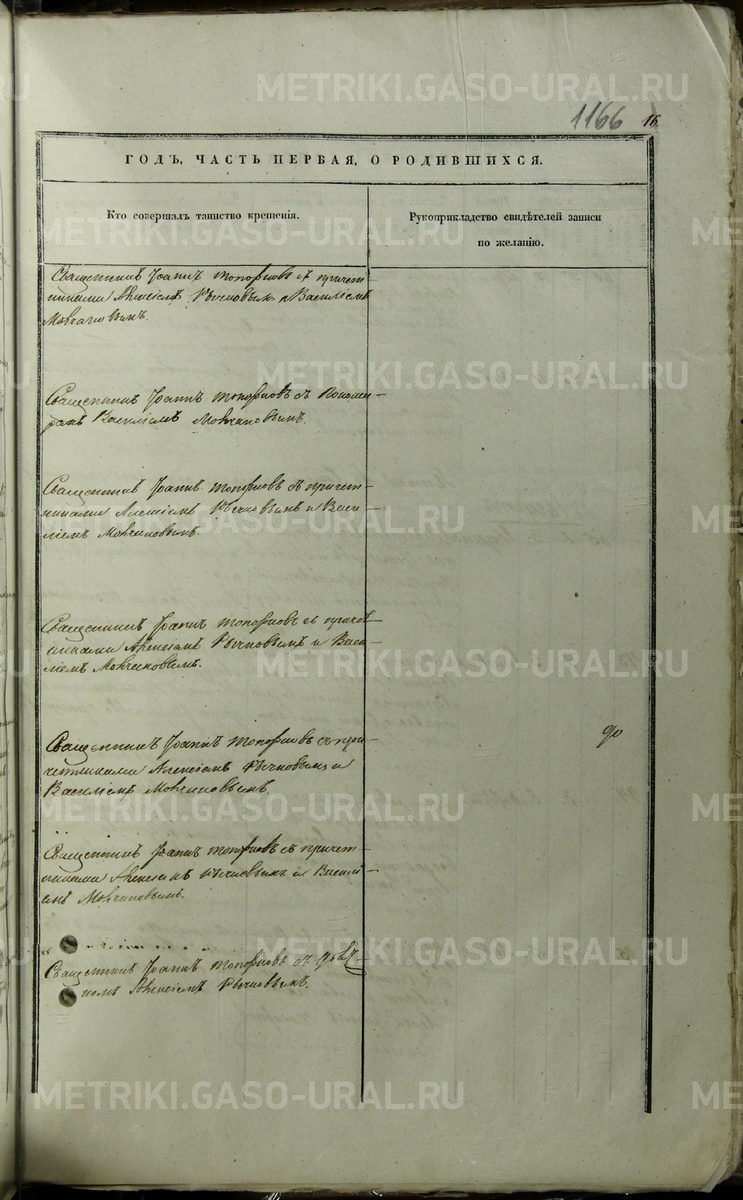 METRIKI.GASO-URAL.RU
1166 16
ГОДЪ, ЧАСТЬ ПЕРВАЯ, О РОДИВШИХСЯ.
Кто совершалъ таинство крещенія.
Рукоприкладство свидѣтелей записи
по желанію.
Священникъ Іоаннъ Топорковъ съ причет-
никами Алексіемъ Рычковымъ и Василіемъ
Священникъ Іоаннъ Топорковъ съ Понома-
ремъ Василіемъ
Священникъ Іоаннъ Топорковъ съ причет-
никами Алексіемъ Рычковымъ и Васи-
ліемъ
Священникъ Іоаннъ Топорковъ съ причет-
никами Алексіемъ Рычковымъ и Васи-
ліемъ
Священникъ Іоаннъ Топорковъ съ при-
четниками Алексіемъ Рычковымъ и
Василіемъ
Священникъ Іоаннъ Топорковъ съ причет-
никами Алексіемъ Рычковымъ и Василі-
емъ
Священникъ Іоаннъ Топорковъ съ
Алексіемъ Рычковымъ.